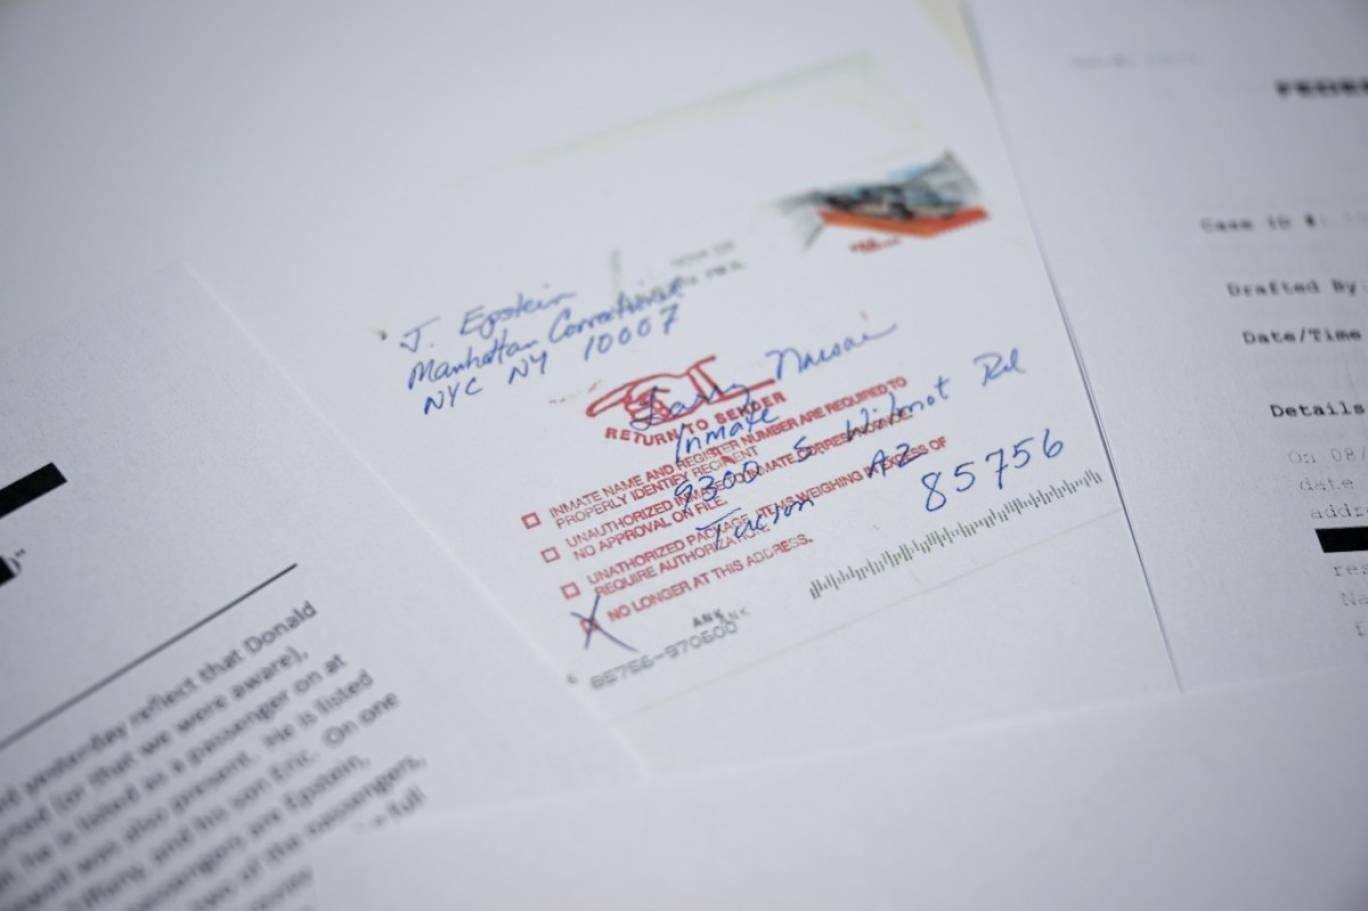 J. Epstein
Manhattan Correctional
NYC NY 10007
Larry Nassar
Inmate
9300 S Wilmot Rd
Tucson AZ
85756
RETURN TO SENDER
INMATE NAME AND REGISTER NUMBER ARE REQUIRED TO
PROPERLY IDENTIFY RECIPIENT
UNAUTHORIZED INMATE TO INMATE CORRESPONDENCE,
NO APPROVAL ON FILE.
UNATHORIZED PACKAGE, ITEMS WEIGHING IN EXCESS OF
REQUIRE AUTHORIZATION.
NO LONGER AT THIS ADDRESS.
X
ANK
85756-970600
yesterday reflect that Donald
(or that we were aware),
he is listed as a passenger on at
was also present. He is listed
Tiffany, and his son Eric. On one
passengers are Epstein,
two of the passengers,
full
Case ID #:
Drafted By:
Date/Time
Details
On 08/
date
addre
res
Na
f